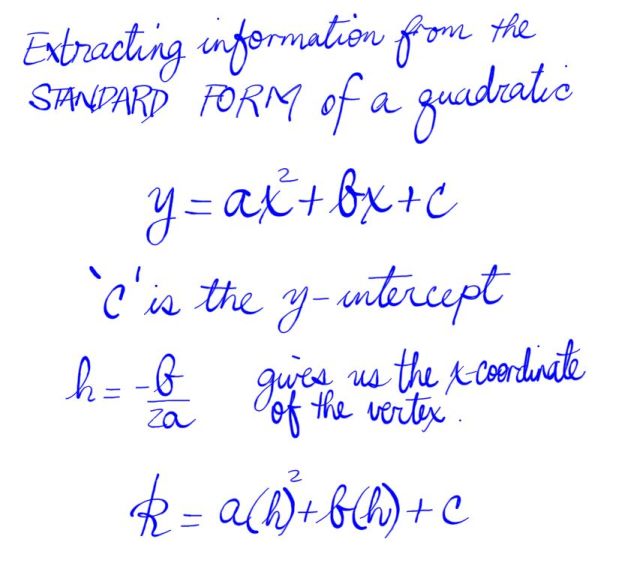 Extracting information from the
STANDARD FORM of a quadratic
y = ax² + bx + c
'c' is the y-intercept
h = -b/2a gives us the x-coordinate
of the vertex.
k = a(h)² + b(h) + c